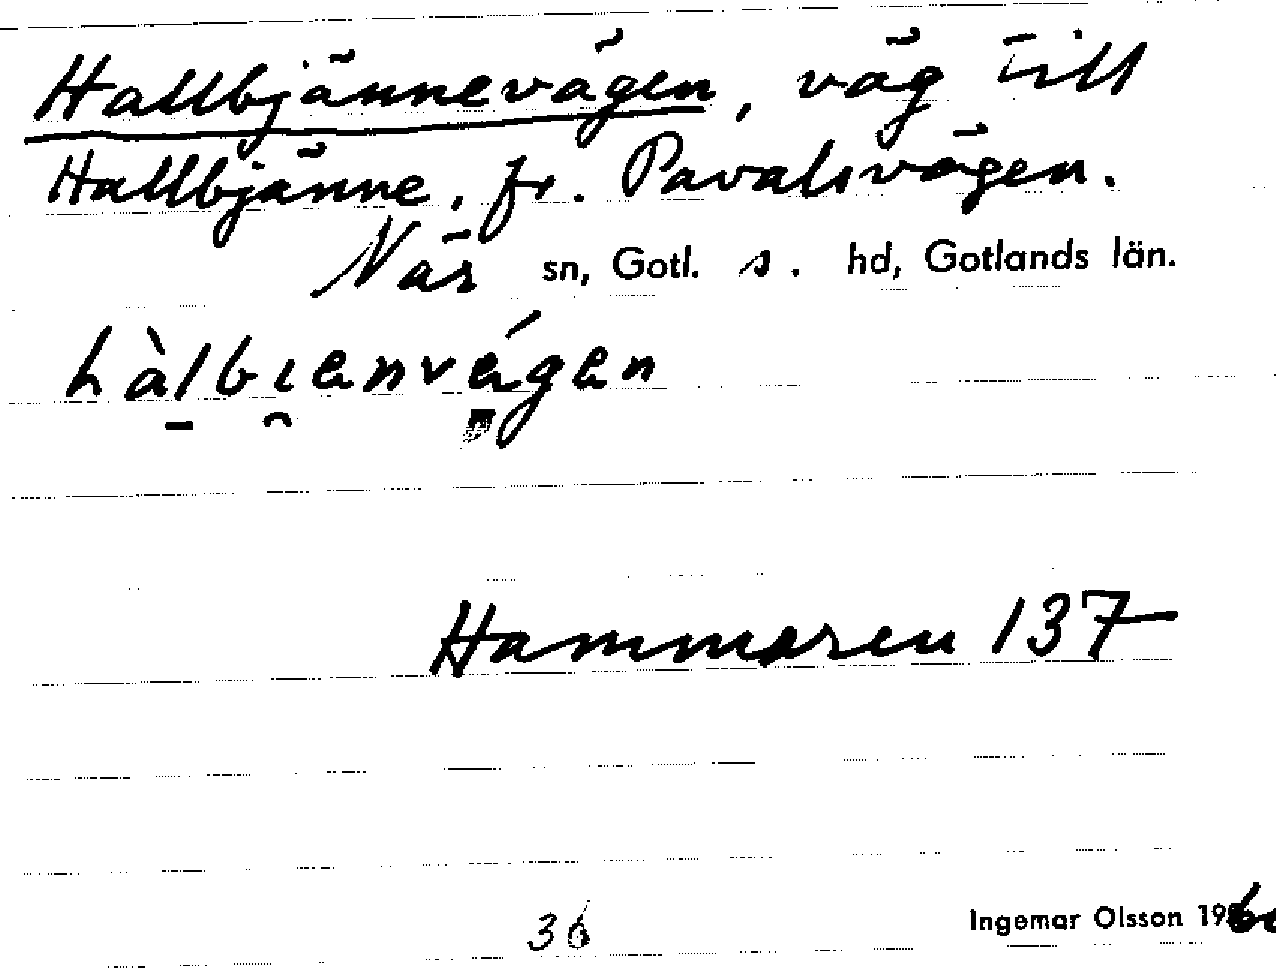 Hallbjännevägen, väg till
Hallbjänne, fr. Pavalsvägen.
När sn, Gotl. s. hd, Gotlands län.
hàlbi̯envégen
Hammaren 137
36
Ingemar Olsson 1960